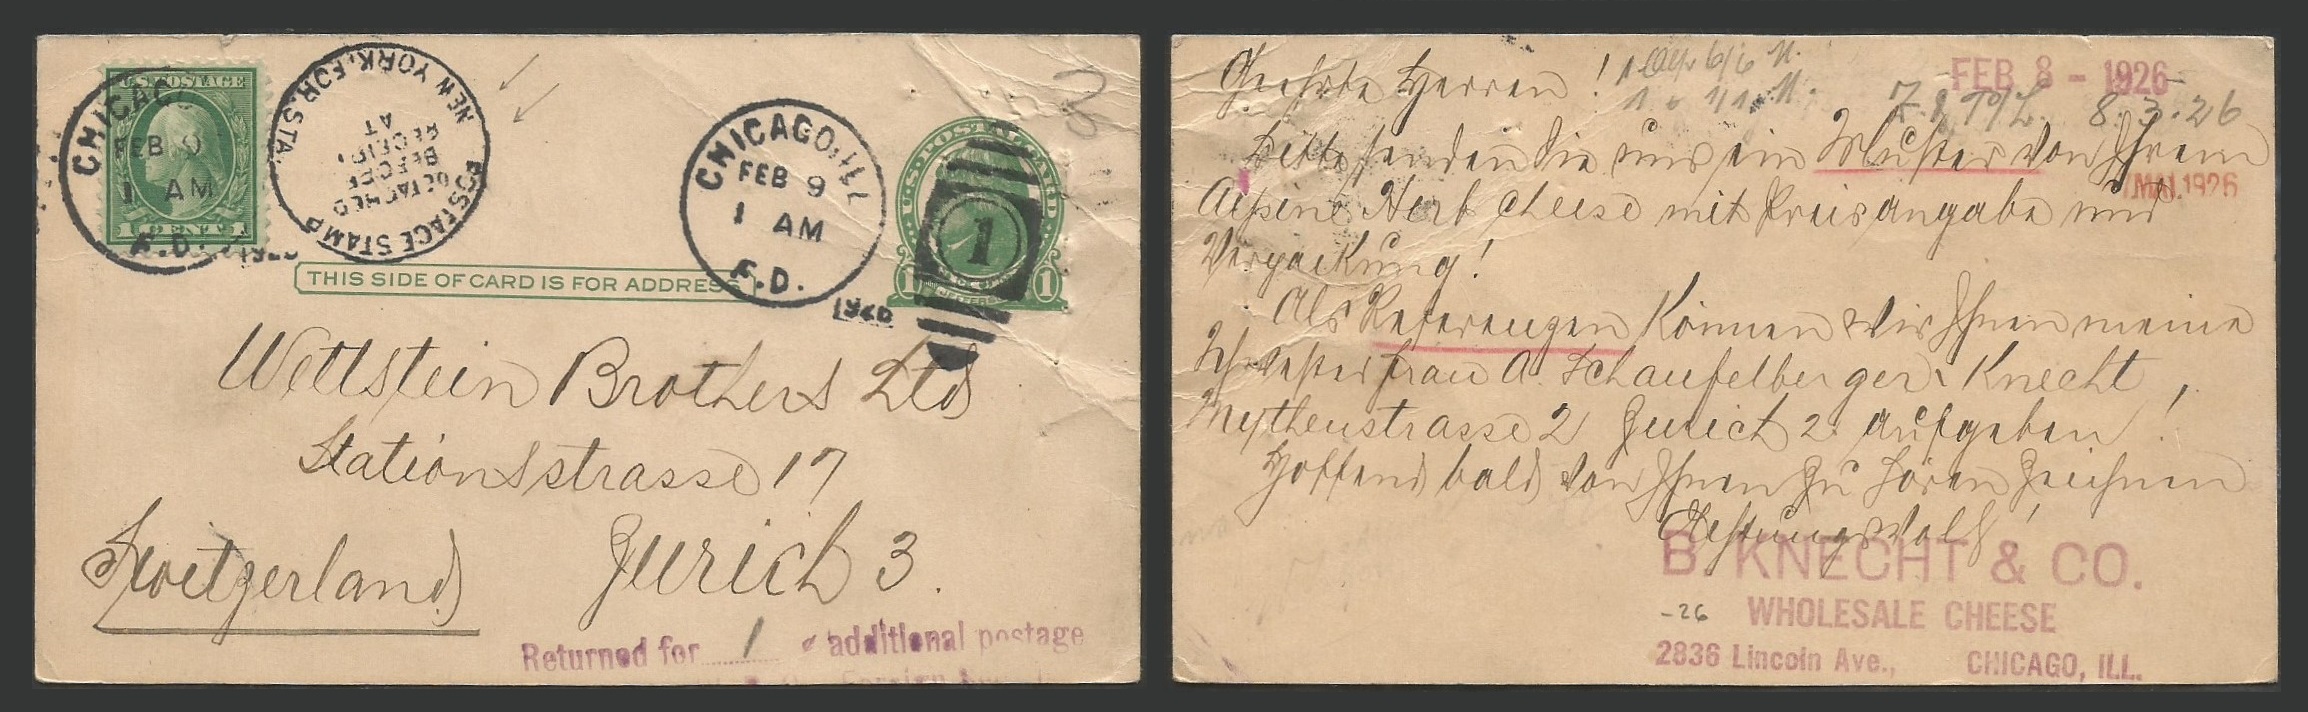 U.S. POSTAGE
1 CENT 1
CHICAGO
FEB 9
1 AM
F.D.
POSTAGE STAMP
DETACHED
BEFORE
RECEIPT
AT
NEW YORK, FOR. STA.
CHICAGO, ILL
FEB 9
1 AM
F.D.
1926
1
U.S. POSTAL CARD
1 1
JEFFERSON
THIS SIDE OF CARD IS FOR ADDRESS
Wettstein Brothers Ltd
Stationsstrasse 17
Zurich 3.
Switzerland
Returned for 1 ¢ additional postage
Foreign
Geehrte Herren!
FEB 8 - 1926
8.3.26
Bitte senden Sie uns ein Muster von Ihrem
MRZ.1926
Alpine Herb Cheese mit Preisangabe und
Verpackung!
Als Referenzen können wir Ihnen meine
Schwester Frau A. Schaufelberger-Knecht,
Mythenstrasse 2 Zurich 2. aufgeben!
Hoffend bald von Ihnen zu hören zeichnen
Achtungsvoll!
B. KNECHT & CO.
-26 WHOLESALE CHEESE
2836 Lincoln Ave., CHICAGO, ILL.